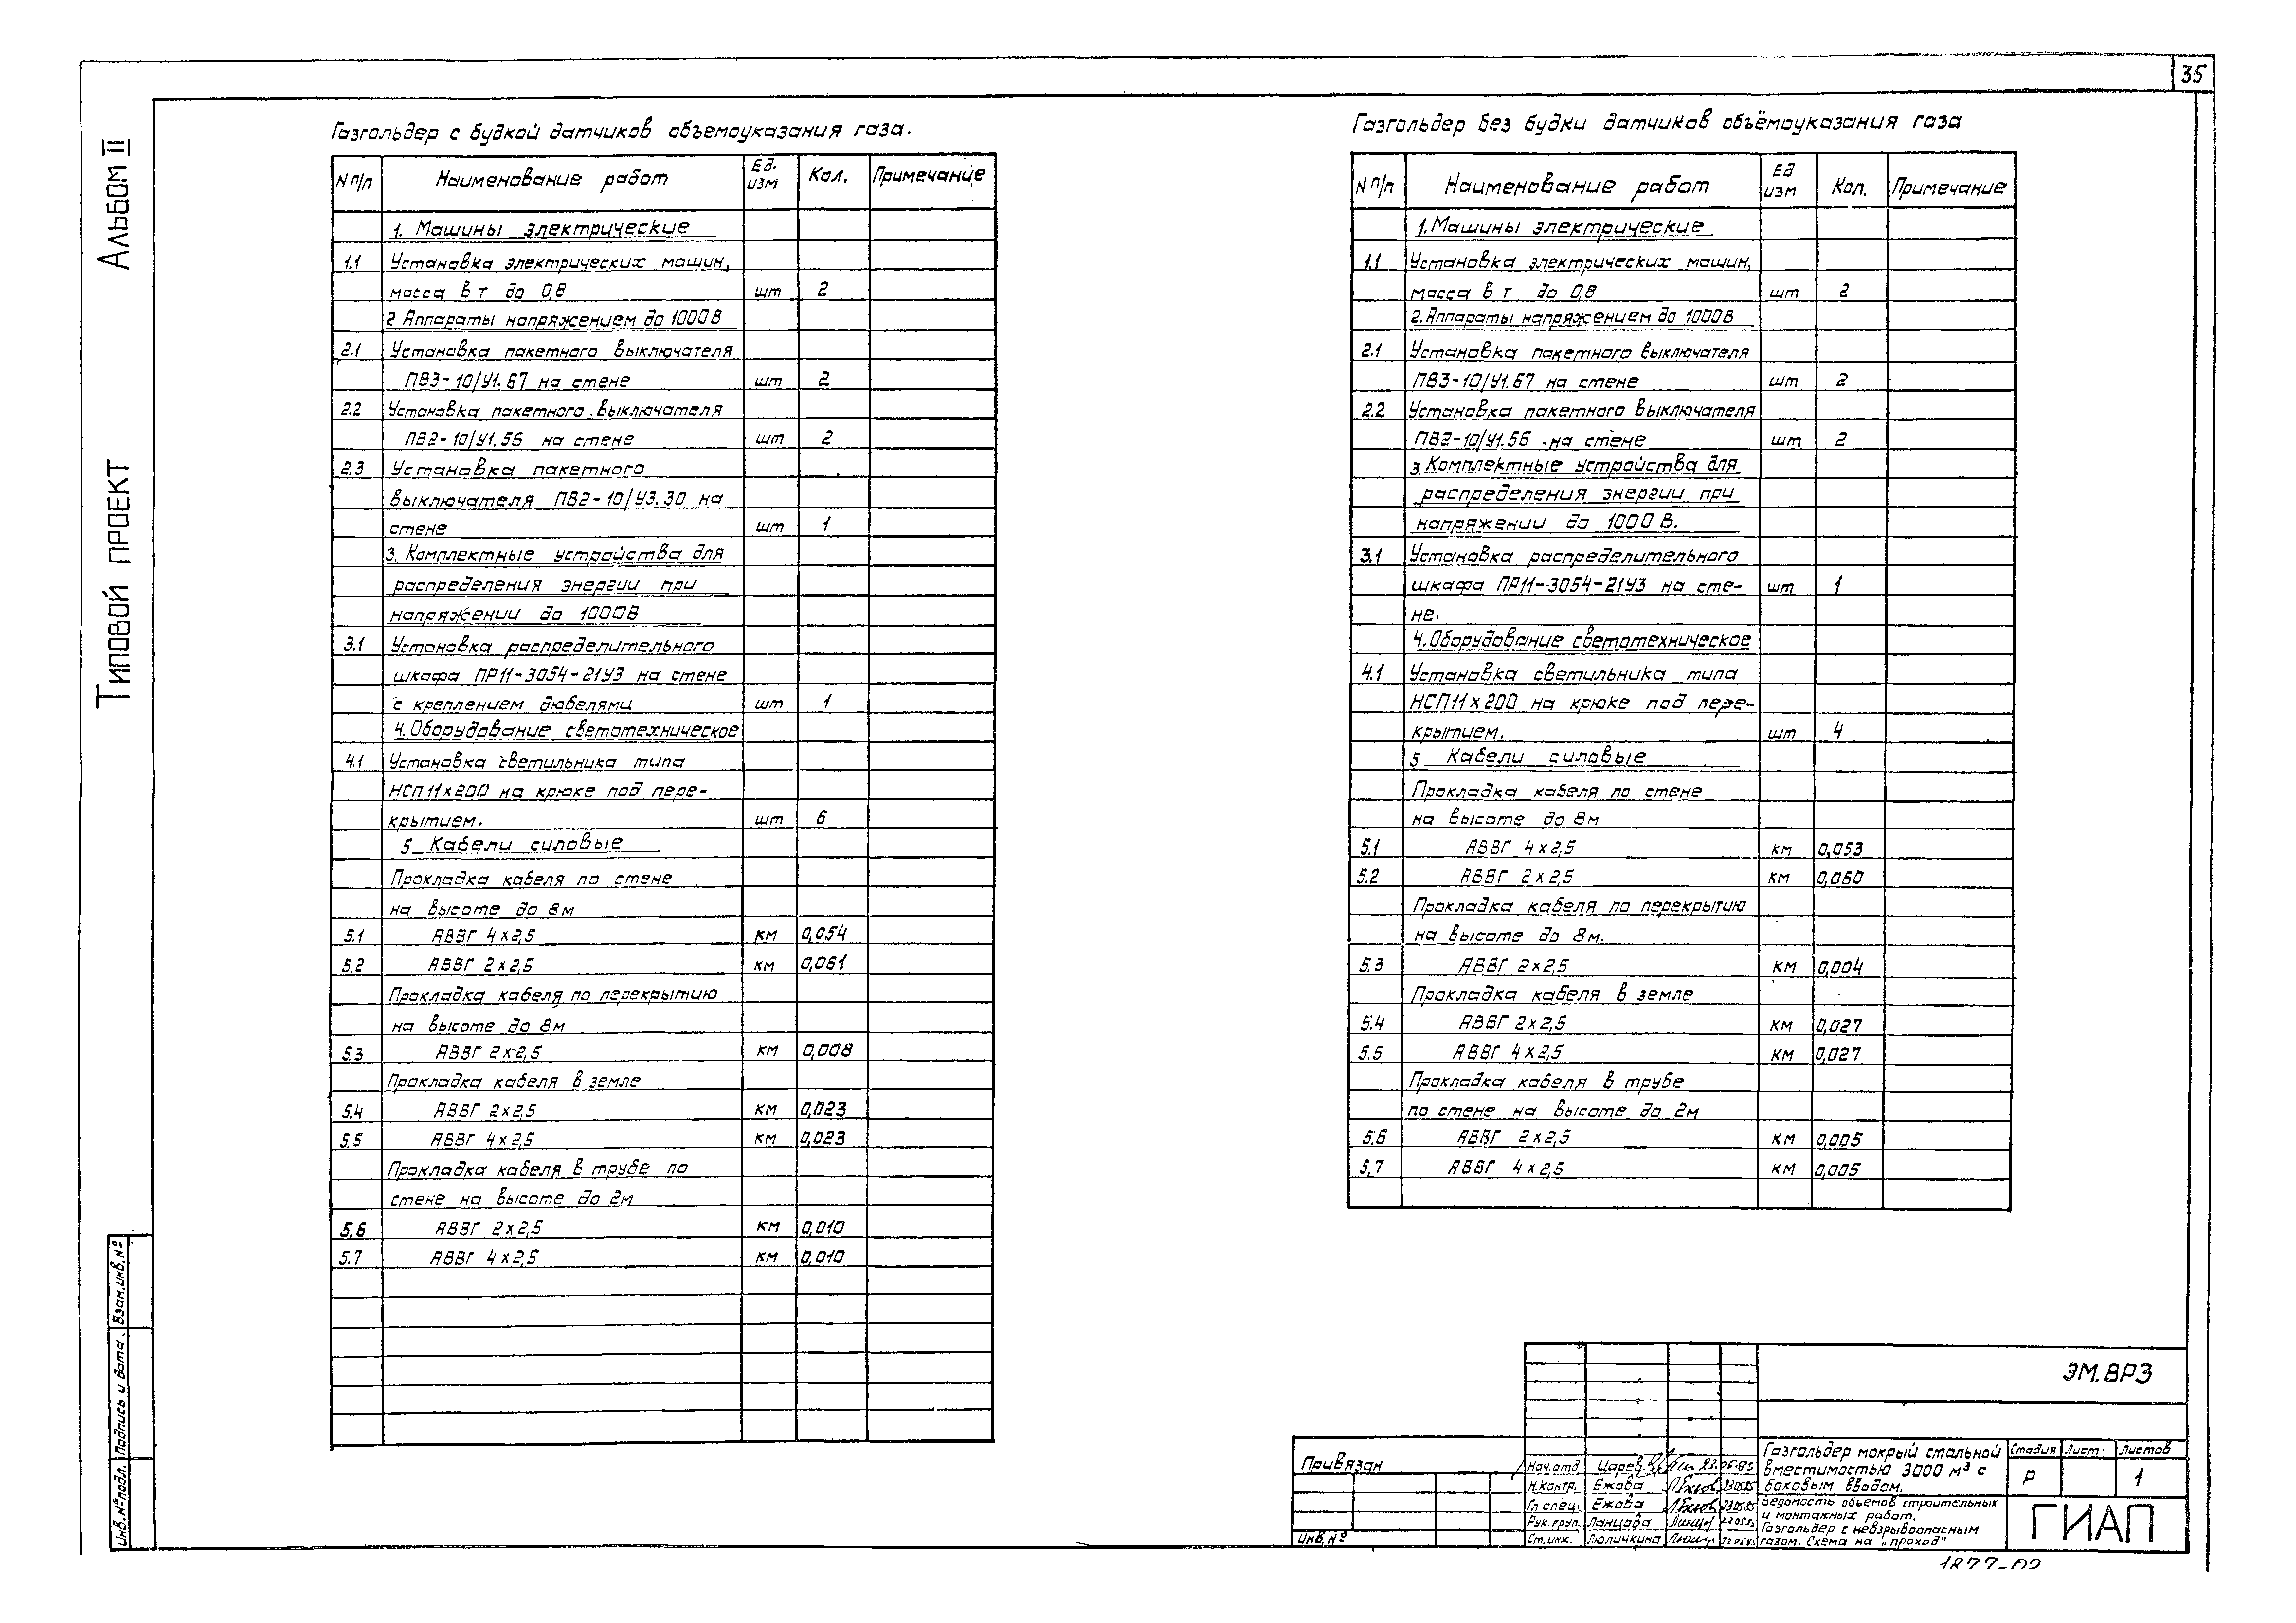 35
Альбом II
Типовой проект
Газгольдер с будкой датчиков объемоуказания газа.
N п/п Наименование работ Ед. изм Кол. Примечание
1. Машины электрические
1.1 Установка электрических машин,
масса в т до 0,8 шт 2
2 Аппараты напряжением до 1000В
2.1 Установка пакетного выключателя
ПВ3-10/У1.67 на стене шт 2
2.2 Установка пакетного выключателя
ПВ2-10/У1.56 на стене шт 2
2,3 Установка пакетного
выключателя ПВ2-10/У3.30 на
стене шт 1
3. Комплектные устройства для
распределения энергии при
напряжении до 1000В
3.1 Установка распределительного
шкафа ПР11-3054-21У3 на стене
с креплением дюбелями шт 1
4. Оборудование светотехническое
4.1 Установка светильника типа
НСП11х200 на крюке под пере-
крытием. шт 6
5 Кабели силовые
Прокладка кабеля по стене
на высоте до 8м
5.1 АВВГ 4х2,5 км 0,054
5.2 АВВГ 2х2,5 км 0,061
Прокладка кабеля по перекрытию
на высоте до 8м
5.3 АВВГ 2х2,5 км 0,008
Прокладка кабеля в земле
5.4 АВВГ 2х2,5 км 0,023
5.5 АВВГ 4х2,5 км 0,023
Прокладка кабеля в трубе по
стене на высоте до 2м
5.6 АВВГ 2х2,5 км 0,010
5.7 АВВГ 4х2,5 км 0,010
Газгольдер без будки датчиков объёмоуказания газа
N п/п Наименование работ Ед изм Кол. Примечание
1. Машины электрические
1.1 Установка электрических машин,
масса в т до 0,8 шт 2
2. Аппараты напряжением до 1000В
2.1 Установка пакетного выключателя
ПВ3-10/У1.67 на стене шт 2
2.2 Установка пакетного выключателя
ПВ2-10/У1.56 на стене шт 2
3. Комплектные устройства для
распределения энергии при
напряжении до 1000 В.
3.1 Установка распределительного
шкафа ПР11-3054-21У3 на сте- шт 1
не.
4. Оборудование светотехническое
4.1 Установка светильника типа
НСП11х200 на крюке под пере-
крытием. шт 4
5 Кабели силовые
Прокладка кабеля по стене
на высоте до 8м
5.1 АВВГ 4х2,5 км 0,053
5.2 АВВГ 2х2,5 км 0,060
Прокладка кабеля по перекрытию
на высоте до 8м.
5.3 АВВГ 2х2,5 км 0,004
Прокладка кабеля в земле
5.4 АВВГ 2х2,5 км 0,027
5.5 АВВГ 4х2,5 км 0,027
Прокладка кабеля в трубе
по стене на высоте до 2м
5.6 АВВГ 2х2,5 км 0,005
5,7 АВВГ 4х2,5 км 0,005
ЭМ.ВР3
Привязан
Инв. №
Нач.отд. Царев 23.05.85
Н.контр. Ежова 23.05.85
Гл спец. Ежова 23.05.85
Рук.груп. Ланцова
Ст.инж. Люличкина
Газгольдер мокрый стальной
вместимостью 3000 м³ с
боковым вводом.
Стадия Лист. Листов
Р 1
Ведомость объемов строительных
и монтажных работ.
Газгольдер с невзрывоопасным
газом. Схема на „проход"
ГИАП
1877-02
Инв. № подл. Подпись и дата. Взам.инв.№